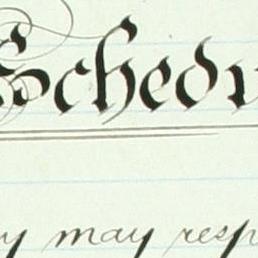 Schedu
y may resp